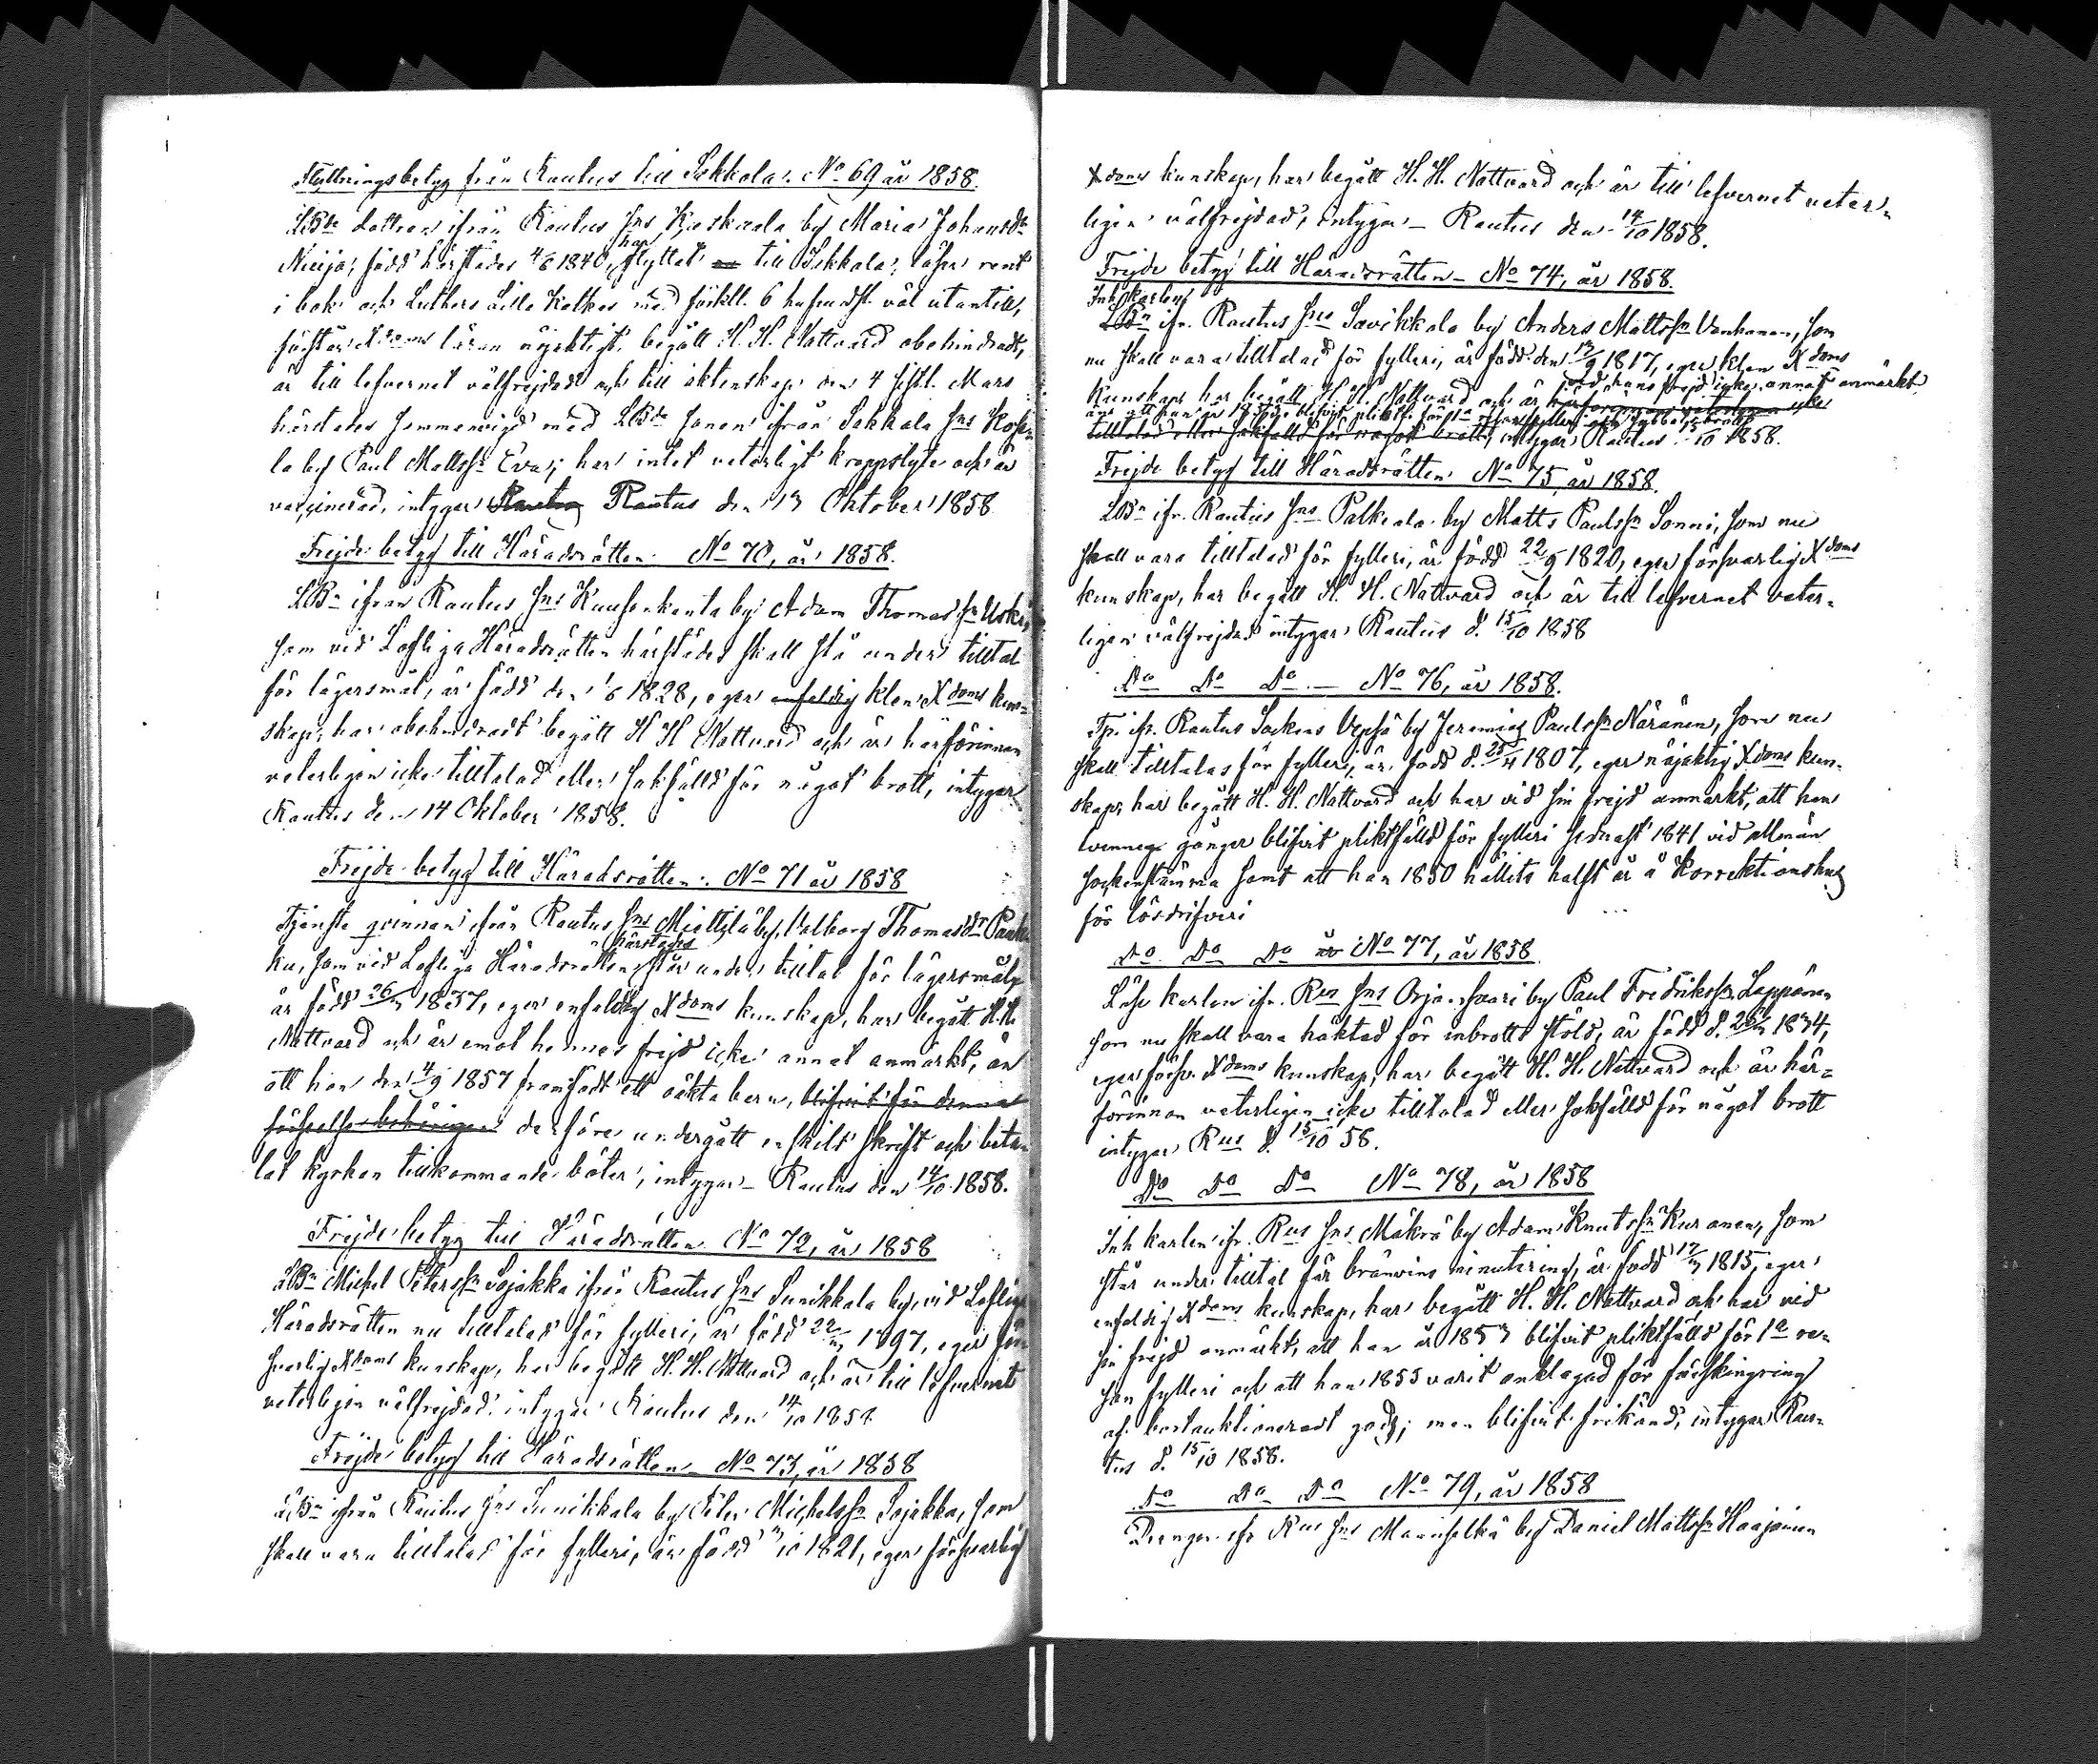 Flyttningsbetyg från Rautus till Sakkola. No 69 år 1858.
LBde dottren ifrån Rautus Sns Kaskaala by Maria Johansdr
Nuija, född härstädes 4/6 1840, har flyttat till Sakkola; läser rent
i bok och Luthers Lilla Katkes med förkll. 6 hufvudst. väl utantill,
förstår Xdoms läran nöjaktigt, begått H. H. Nattvard obehindradt,
är till lefvernet välfrejdad och till äktenskap den 4 sistl. Mars
härstädes sammanvigd med LBde sonen ifrån Sakkola Sns Kose=
la by Paul Mattssn Eva; har intet veterligt kroppslyte och är
vaccinerad, intygar Rautus Rautus den 13 Oktober 1858
Frejde betyg till Häradsrätten No 70, år 1858.
LBn ifrån Rautus Sns Kuusenkanta by Adam Thomassn Uski,
som vid Lofliga Häradsrätten härstädes skall stå under tilltal
för lägersmål, är född den 1/6 1828, eger enfaldig klen Xdoms kun=
skap, har obehindradt begått H H Nattvard och är härförinnan
veterligen icke tilltalad eller sakfälld för något brott, intygar
Rautus den 14 Oktober 1858.
Frejde betyg till Häradsrätten. No 71 år 1858
Tjenste qvinnan ifrån Rautus Sns Miettilä by, Valborg Thomasdr
ku, som vid Lofliga Häradsrätten härstädes står under tilltal för lägersmål,
är född 26/ 1837, eger enfaldig Xdoms kunskap, har begått H.H.
Nattvard och är emot hennes frejd icke annat anmärkt, än
att hon den 4/9 1857 framfödt ett oäkta barn, blifvit för denna
förseelse behörigen derföre undergått enskilt skrift och beta=
lat kyrkan tillkommande böter, intygar_ Rautus den 14/10 1858.
Frejde betyg till Häradsrätten No 72, år 1858
LBn Michel Peterssn Sojakka ifrån Rautus Sns Sunikkala by, vid Lofliga
Häradsrätten nu tilltalad för fylleri, är född 22/ 1797, eger för
svarlig Xdoms kunskap, har begått H. H. Nattvard och är till lefvernet
veterligen välfrejdad, intygar Rautus den 14/10 1858
Frejde betyg till Häradsrätten_ No 73, år 1858
LBn ifrån Rautus Sns Sunikkala by Peter Michelssn Sojakka, som
skall vara tilltalad för fylleri, är född /10 1821, eger försvarlig
Xdoms kunskap, har begått H. H. Nattvard och är till lefvernet veter=
ligen välfrejdad, intygar_ Rautus den 14/10 1858.
Frejde betyg till Häradsrätten_ No 74, år 1858.
Inh karlen
LBn ifr. Rautus Sns Savikkala by Anders Mattssn Vanhanen, som
nu skall vara tilltalad för fylleri, är född den 13/9 1817, eger klen Xdoms
Kunskap, har begått H. H. Nattvard och är vid hans frejd icke annat anmärkt,
tilltalad eller sakfälld för något brott, intygar Rautus /10 1858.
Frejde betyg till Häradsrätten No 75, år 1858.
LBn ifr. Rautus Sns Palkeala by Matts Paulssn Sonni, som nu
skall vara tilltalad för fylleri, är född 22/9 1820, eger försvarlig Xdoms
kunskap, har begått H. H. Nattvard och är till lefvernet veter=
ligen välfrejdad intygar Rautus d. 15/10 1858
Do Do Do — No 76, år 1858.
Tp. ifr. Rautus Sockens by Jeremias Paulssn Näränen, som nu
skall tilltalas för fylleri, är född d. 25/4 1807, eger nöjaktig Xdoms kun=
skap, har begått H. H. Nattvard och har vid sin frejd anmärkt, att han
tvenne gånger blifvit pliktfälld för fylleri sednast 1841 vid allmän
sockenstämma samt att han 1850 hållits halft år å Korrektionshus
för lösdrifveri
Do Do Do år No 77, år 1858
Löse karlen ifr. Rus Sns Orjansaari by Paul Fredrikssn Lappänen
som nu skall vara häktad för inbrotts stöld, är född d. 25/ 1834,
eger förs. Xdoms kunskap, har begått H. H. Nattvard och är här=
förinnan veterligen icke tilltalad eller sakfälld för något brott
intygar Rus d. 15/10 58.
Do Do Do No 78, år 1858
Inh karlen ifr. Rus Sns Mäkrä by Adam Knutssn Kuranen, som
står under tilltal för bränvins minutering, är född 17/ 1815, eger
enfaldig Xdoms kunskap, har begått H. H. Nattvard och har vid
sin frejd anmärkt, att han år 1853 blifvit pliktfälld för 1a re=
san fylleri och att han 1855 varit anklagad för förskingring
af bortauktioneradt gods; men blifvit frikänd, intygar Rau=
tus d. 15/10 1858.
Do Do Do No 79, år 1858
Drengen ifr Rus Sns Maanselkä by Daniel Mattssn Haajanen